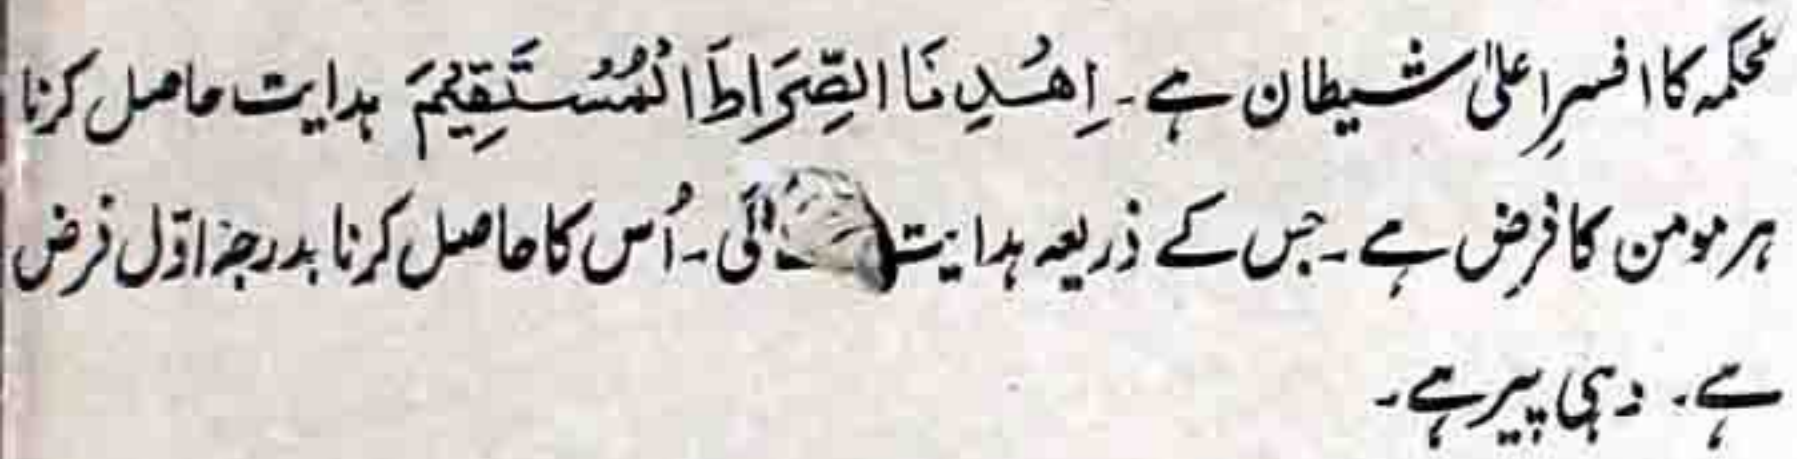 محکمہ کا افسرِ اعلیٰ شیطان ہے۔ اِھْدِنَا الصِّرَاطَ الْمُسْتَقِیْمَ ہدایت حاصل کرنا
ہر مومن کا فرض ہے۔ جس کے ذریعہ ہدایت گی۔ اُس کا حاصل کرنا بدرجۂ اوّل فرض
ہے۔ وہی پیر ہے۔